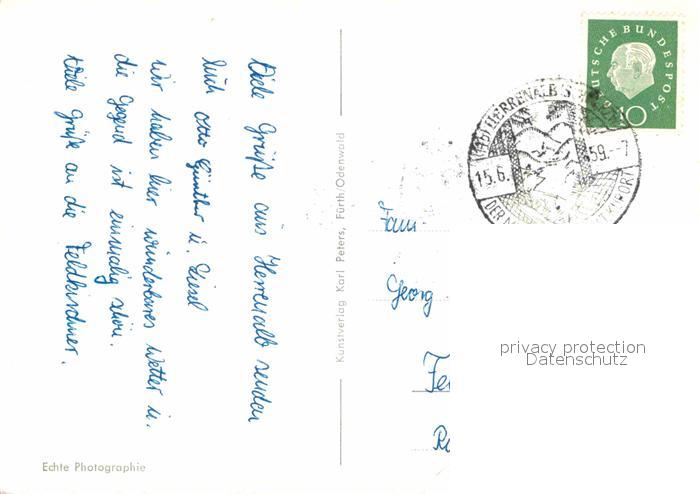 Viele Grüße aus Herrenalb senden
Euch Otto Günther u. Liesel
Wir haben hier wunderbares Wetter u.
die Gegend ist einmalig schön.
Viele Grüße an die Feldkirchner.
Echte Photographie
Kunstverlag Karl Peters, Fürth/Odenwald
DEUTSCHE BUNDESPOST
10
HERRENALB
15.6.
59.--7
Fam.
Georg
privacy protection
Datenschutz